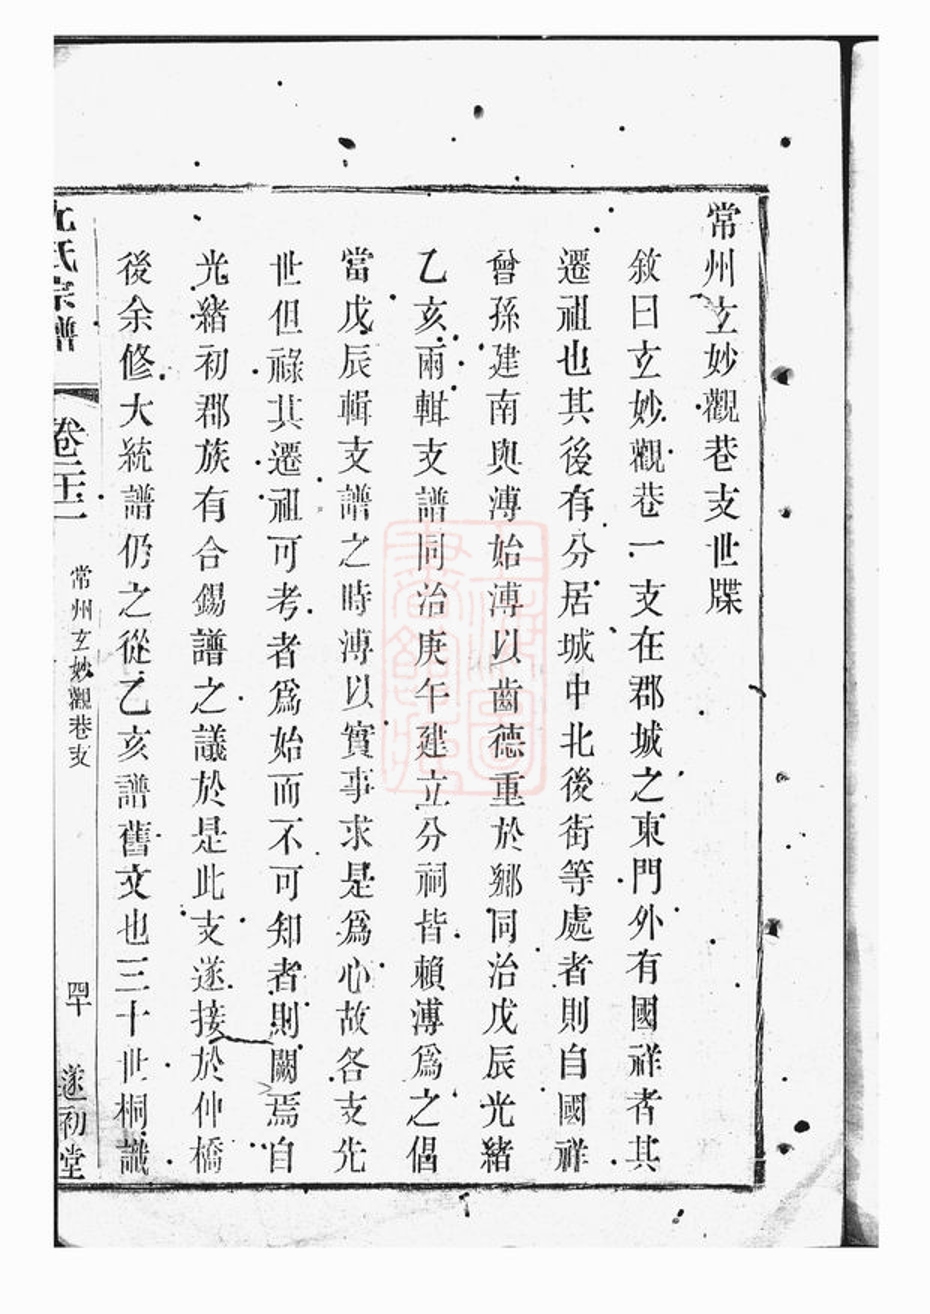 常州玄妙觀巷支世牒
敘曰玄妙觀巷一支在郡城之東門外有國祥者其
遷祖也其後有分居城中北後街等處者則自國祥
曾孫建南與溥始溥以齒德重於鄉同治戊辰光緒
乙亥兩輯支譜同治庚午建立分祠皆賴溥爲之倡
當戊辰輯支譜之時溥以實事求是爲心故各支先
世但祿其遷祖可考者爲始而不可知者則闕焉自
光緒初郡族有合錫譜之議於是此支遂接於仲橋
後余修大統譜仍之從乙亥譜舊文也三十世桐識
尤氏宗譜
卷二
常州玄妙觀巷支
四十
遂初堂